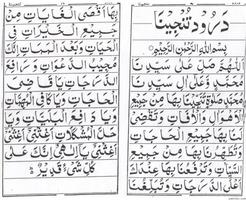 دُرُود تُنَجِّيْنَا
بِسْمِ اللهِ الرَّحْمٰنِ الرَّحِيْمِ
اَللّٰهُمَّ صَلِّ عَلٰى سَيِّدِنَا
مُحَمَّدٍ وَّعَلٰى اٰلِ سَيِّدِنَا
مُحَمَّدٍ صَلٰوةً تُنَجِّيْنَا بِهَا مِنْ جَمِيْعِ
الْاَهْوَالِ وَالْاٰفَاتِ وَتَقْضِيْ
لَنَا بِهَا جَمِيْعَ الْحَاجَاتِ
وَتُطَهِّرُنَا بِهَا مِنْ جَمِيْعِ
السَّيِّاٰتِ وَتَرْفَعُنَا بِهَا عِنْدَكَ
اَعْلَى الدَّرَجَاتِ وَتُبَلِّغُنَا
بِهَا اَقْصَى الْغَايَاتِ مِنْ
جَمِيْعِ الْخَيْرَاتِ فِي
الْحَيَاتِ وَبَعْدَ الْمَمَاتِ اِنَّكَ
الدَّرَجَاتِ يَا قَاضِيَ
الْحَاجَاتِ وَيَا كَافِيَ الْمُهِمَّاتِ
وَيَا دَافِعَ الْبَلِيَّاتِ وَيَا
حَلَّ الْمُشْكِلَاتِ اَغِثْنِيْ اَغِثْنِيْ
اَغِثْنِيْ يَا اِلٰهِيْ اِنَّكَ عَلٰى
كُلِّ شَيْءٍ قَدِيْرٌ